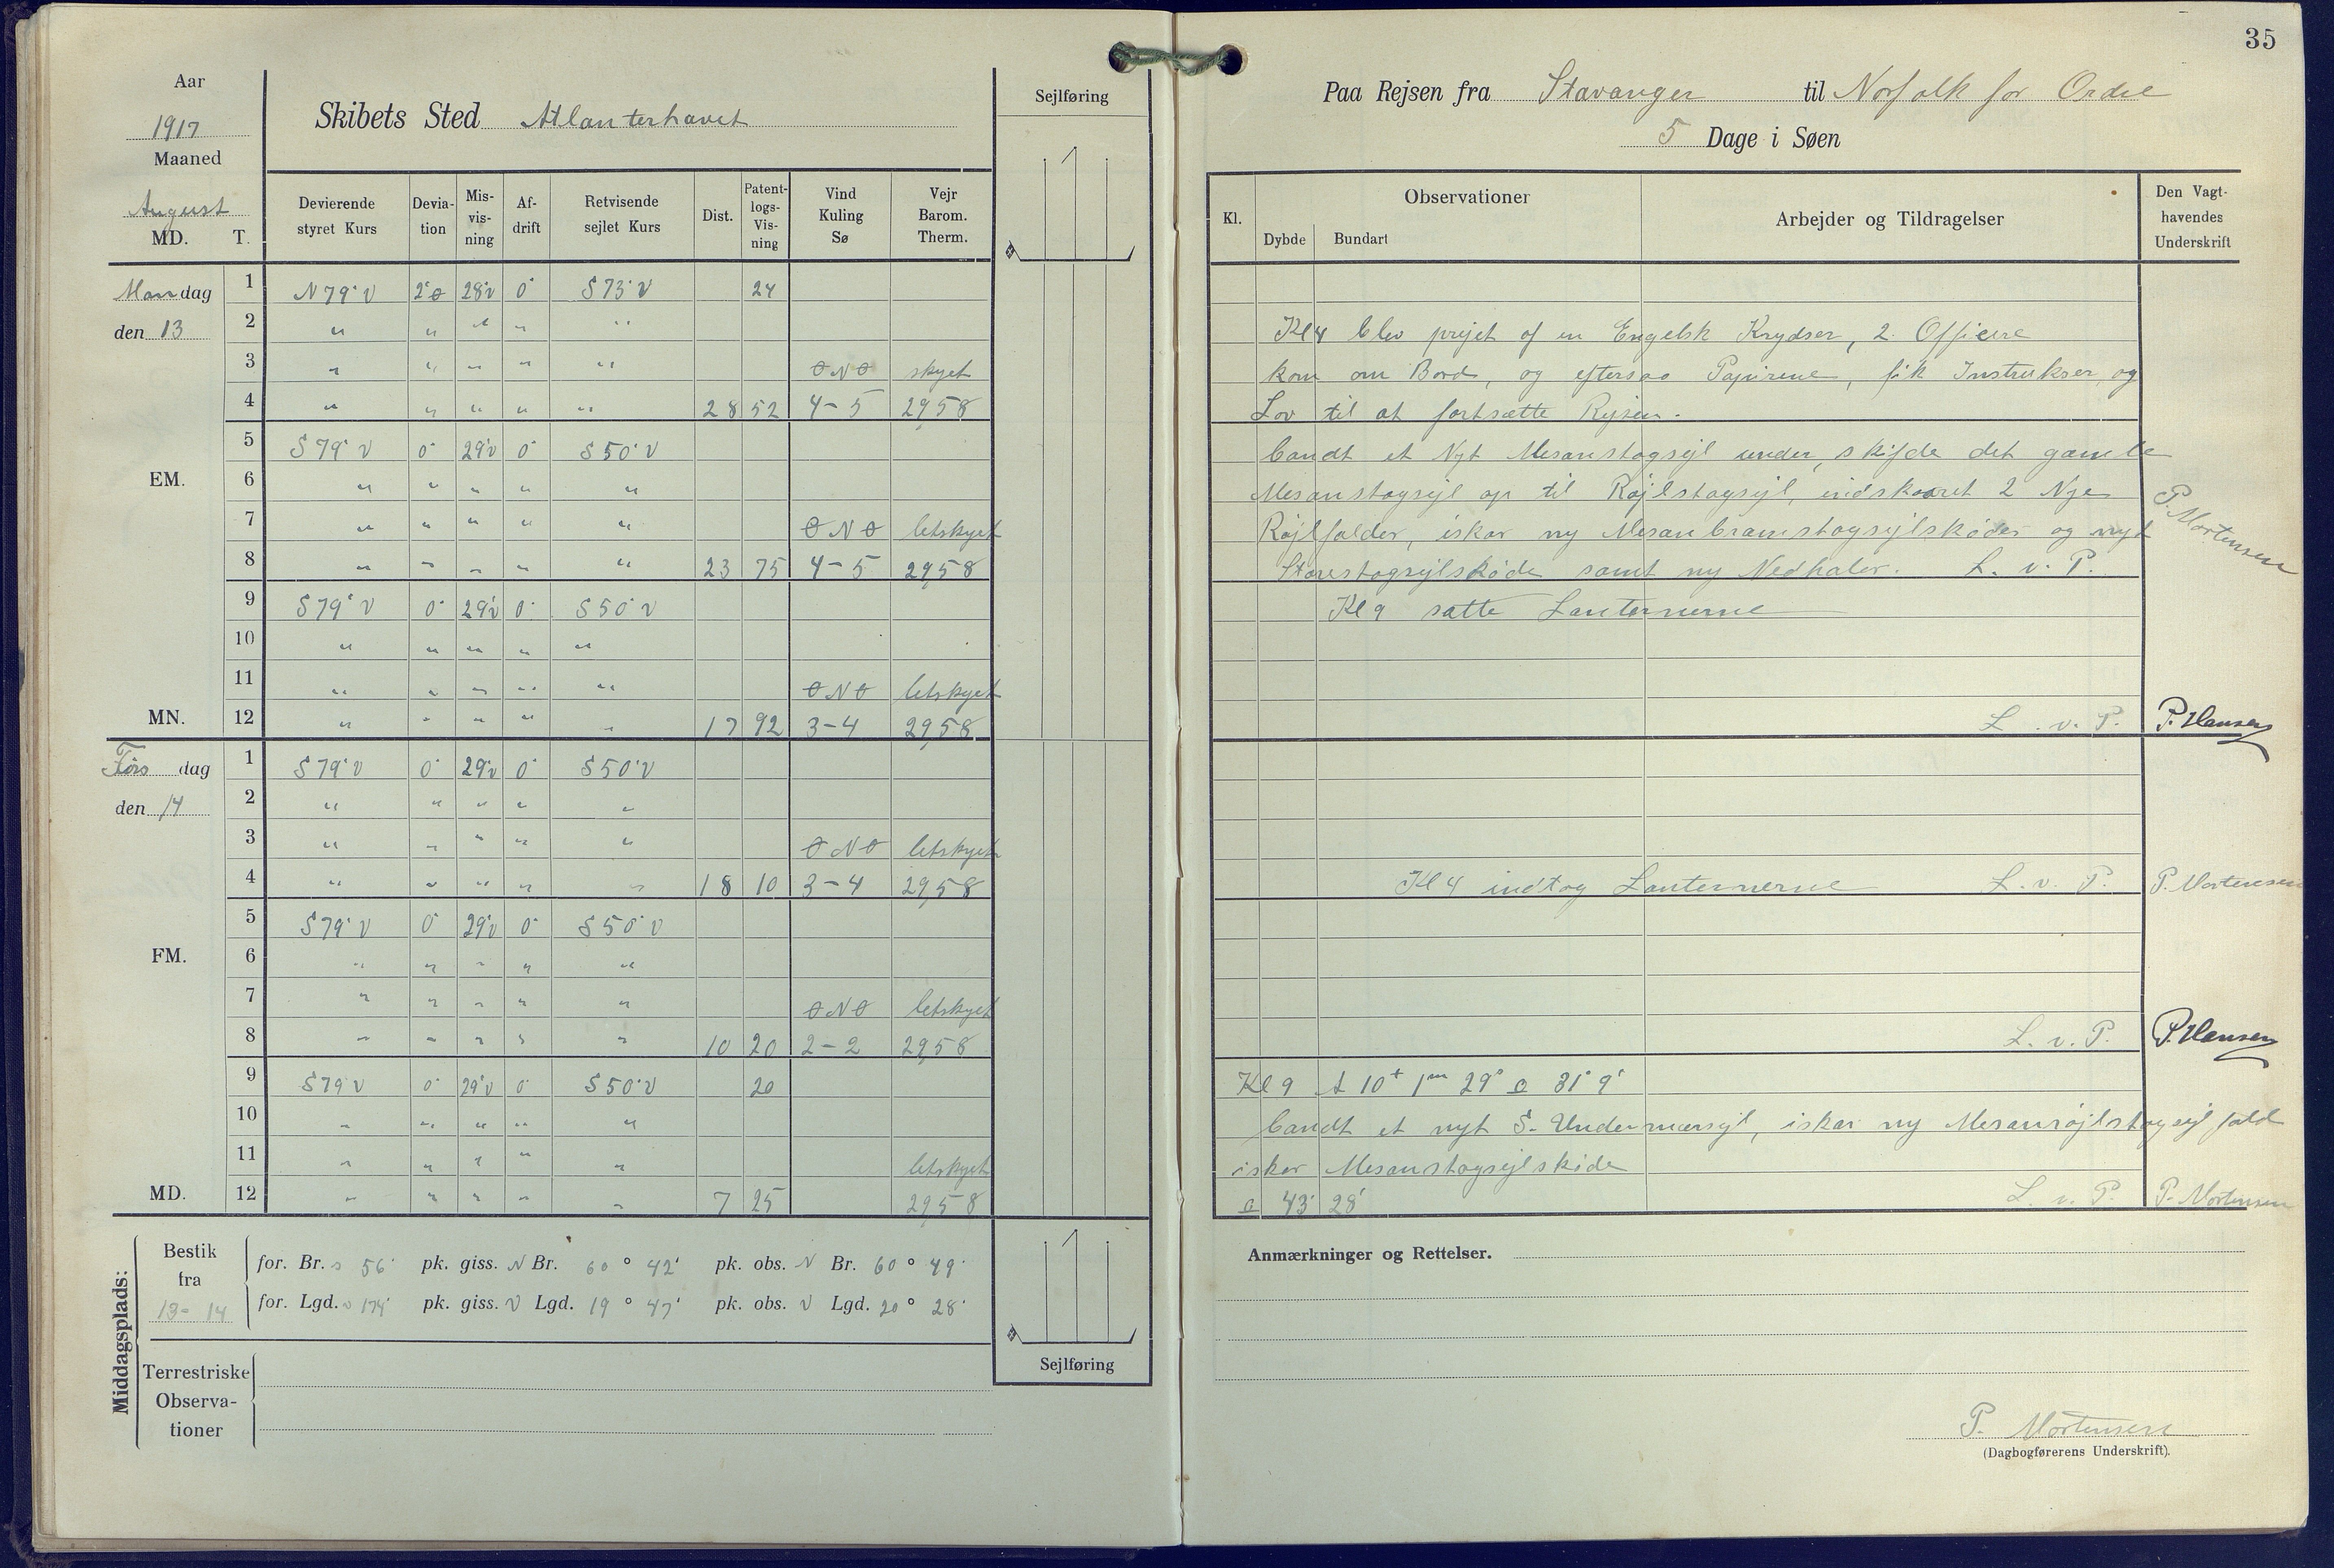 35
Aar
1917
Maaned
August
MD. T.
Skibets Sted Atlanterhavet
Sejlføring
Devierende styret Kurs | Devia-tion | Mis-vis-ning | Af-drift | Retvisende sejlet Kurs | Dist. | Patent-logs-Vis-ning | Vind Kuling Sø | Vejr Barom. Therm.
Mandag 1 N 79° V 2°Ø 28°V 0° S 73° V 24
den 13 2 " " " " "
3 " " " " " ONO skyet
4 " " " " " 28 52 4-5 29,58
5 S 79° V 0° 29°V 0° S 50° V
EM. 6 " " " " "
7 " " " " " ONO letskyet
8 " " " " " 23 75 4-5 29,58
9 S 79° V 0° 29°V 0° S 50° V
10 " " " " "
11 " " " " " ONO letskyet
MN. 12 " " " " " 17 92 3-4 29,58
Tirsdag 1 S 79° V 0° 29°V 0° S 50° V
den 14 2 " " " " "
3 " " " " " ONO letskyet
4 " " " " " 18 10 3-4 29,58
5 S 79° V 0° 29°V 0° S 50° V
FM. 6 " " " " "
7 " " " " " ONO letskyet
8 " " " " " 10 20 2-2 29,58
9 S 79° V 0° 29°V 0° S 50° V 20
10 " " " " "
11 " " " " " letskyet
MD. 12 " " " " " 7 25 29,58
Middagsplads:
Bestik fra 13-14
for. Br. S 56' pk. giss. N Br. 60° 42' pk. obs. N Br. 60° 49'
for. Lgd. V 174' pk. giss. V Lgd. 19° 47' pk. obs. V Lgd. 20° 28'
Terrestriske Observa-tioner
Sejlføring
Paa Rejsen fra Stavanger til Norfolk for Ordre
5 Dage i Søen
Kl. | Observationer Dybde Bundart | Arbejder og Tildragelser | Den Vagt-havendes Underskrift
Kl 4 blev prejet af en Engelsk Krydser, 2 Officere
kom om Bord, og eftersaa Papirene, fik Instrukser og
Lov til at fortsætte Rejsen.
bandt et Nyt Mesanstagsejl under, skifde det gamle
Mesanstagsejl op til Røjlstagsejl, indskaaret 2 Nye
Røjlfalder, iskar ny Mesanbramstagsejlskøder og nyt
Storestagsejlskøde samt ny Nedhaler. L. v. P.
P. Mortensen
Kl 9 satte Lanternerne
L. v. P. P. Hansen
Kl 4 indtog Lanternerne L. v. P. P. Mortensen
L. v. P. P. Hansen
Kl 9 10 1 29 31° 9'
bandt et nyt S-Undermærsejl, iskar ny Mesanrøjlstagsejlfald
iskar Mesanstagsejlskøde
43° 28' L. v. P. P. Mortensen
Anmærkninger og Rettelser.
P. Mortensen
(Dagbogførerens Underskrift).